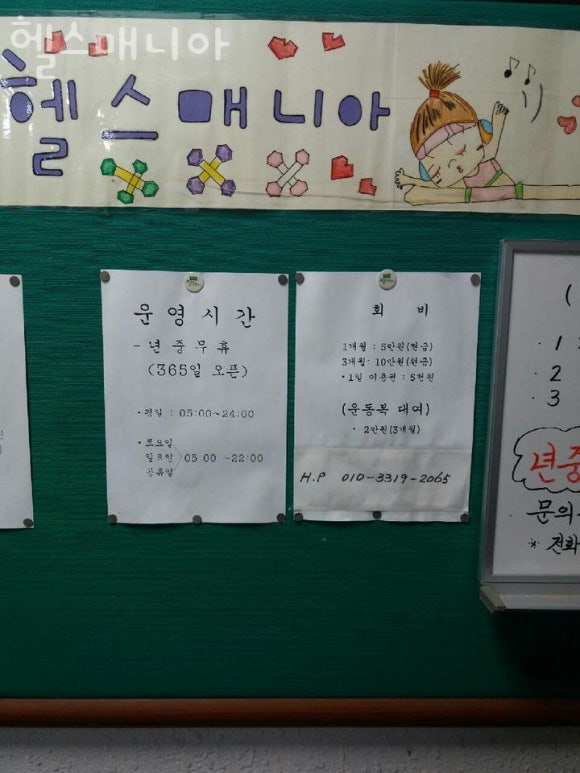 헬스매니아
헬스매니아
운영시간
- 년중무휴
(365일 오픈)
· 평일 : 05:00~24:00
· 토요일
일요일 05:00 ~22:00
공휴일
회 비
1개월 : 5만원(현금)
3개월· 10만원(현금)
· 1일 이용권 : 5천원
(운동복 대여)
· 2만원(3개월)
H.P 010-3319-2065
(
· 1
2
· 3
년중
· 문의
※ 전화